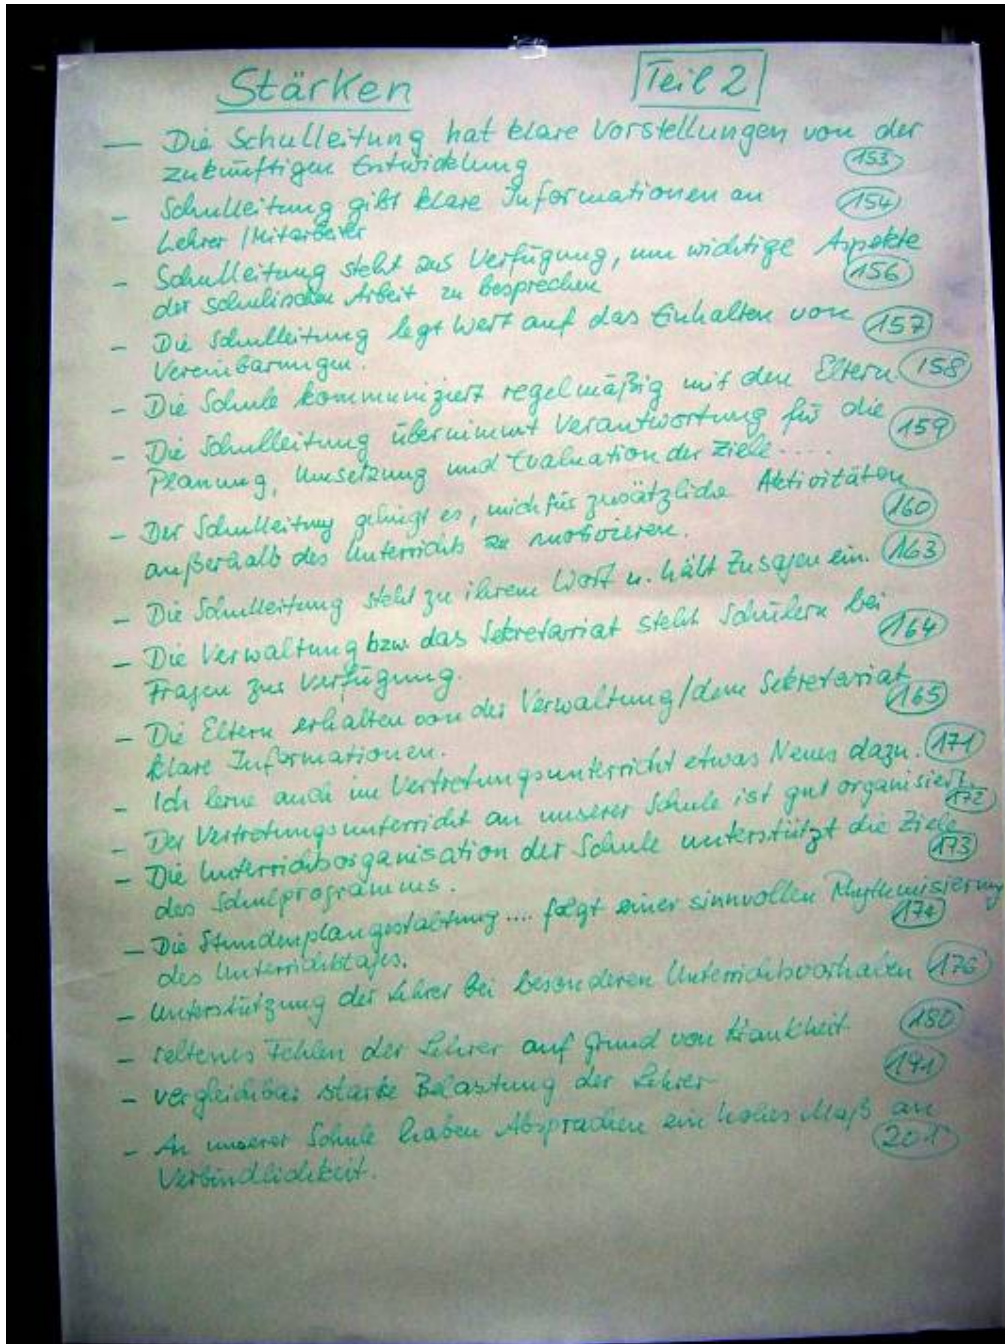 Stärken Teil 2
— Die Schulleitung hat klare Vorstellungen von der
zukünftigen Entwicklung 153
- Schulleitung gibt klare Informationen an 154
Lehrer / Mitarbeiter
- Schulleitung steht zur Verfügung, um wichtige Aspekte
der schulischen Arbeit zu besprechen 156
- Die Schulleitung legt Wert auf das Einhalten von 157
Vereinbarungen.
- Die Schule kommuniziert regelmäßig mit den Eltern 158
- Die Schulleitung übernimmt Verantwortung für die 159
Planung, Umsetzung und Evaluation der Ziele ....
- Der Schulleitung gelingt es, mich für zusätzliche Aktivitäten
außerhalb des Unterrichts zu motivieren. 160
- Die Schulleitung steht zu ihrem Wort u. hält Zusagen ein. 163
- Die Verwaltung bzw. das Sekretariat steht Schülern bei
Fragen zur Verfügung. 164
- Die Eltern erhalten von der Verwaltung/dem Sekretariat
klare Informationen. 165
- Ich lerne auch im Vertretungsunterricht etwas Neues dazu. 171
- Der Vertretungsunterricht an unserer Schule ist gut organisiert. 172
- Die Unterrichtsorganisation der Schule unterstützt die Ziele
des Schulprogramms. 173
- Die Stundenplangestaltung .... folgt einer sinnvollen Rhythmisierung
des Unterrichtstages. 174
- Unterstützung der Lehrer bei besonderen Unterrichtsvorhaben 176
- seltenes Fehlen der Lehrer auf Grund von Krankheit 180
- vergleichbar starke Belastung der Lehrer 191
- An unserer Schule haben Absprachen ein hohes Maß an
Verbindlichkeit. 201